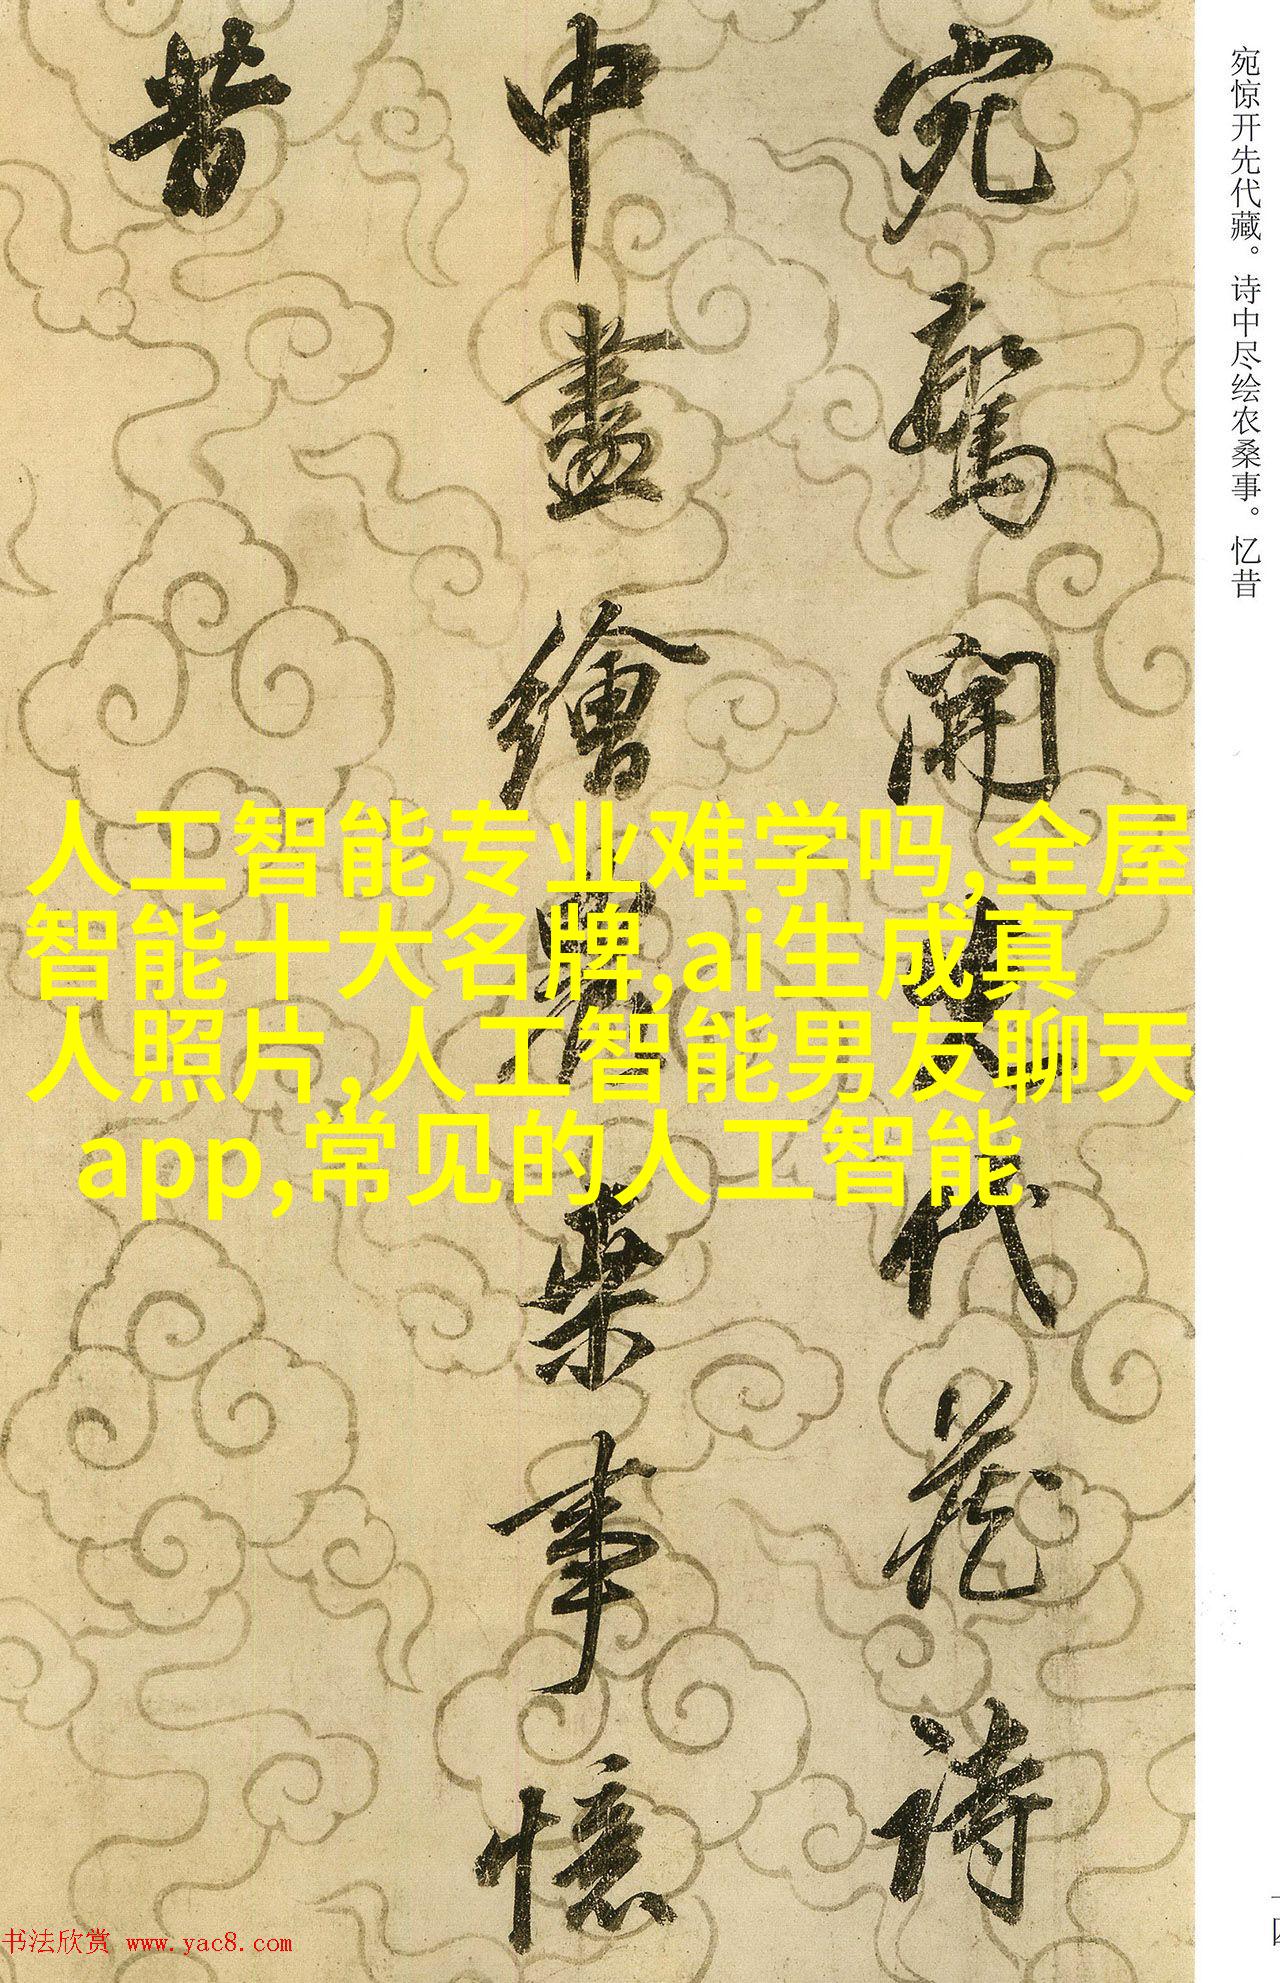 宛驚開先代藏詩
中盡繪農桑事憶
昔
宛惊开先代藏。诗中尽绘农桑事。忆昔
人工智能专业难学吗,全屋
智能十大名牌,ai生成真
人照片,人工智能男友聊天
app,常见的人工智能
书法欣赏 www.yac8.com